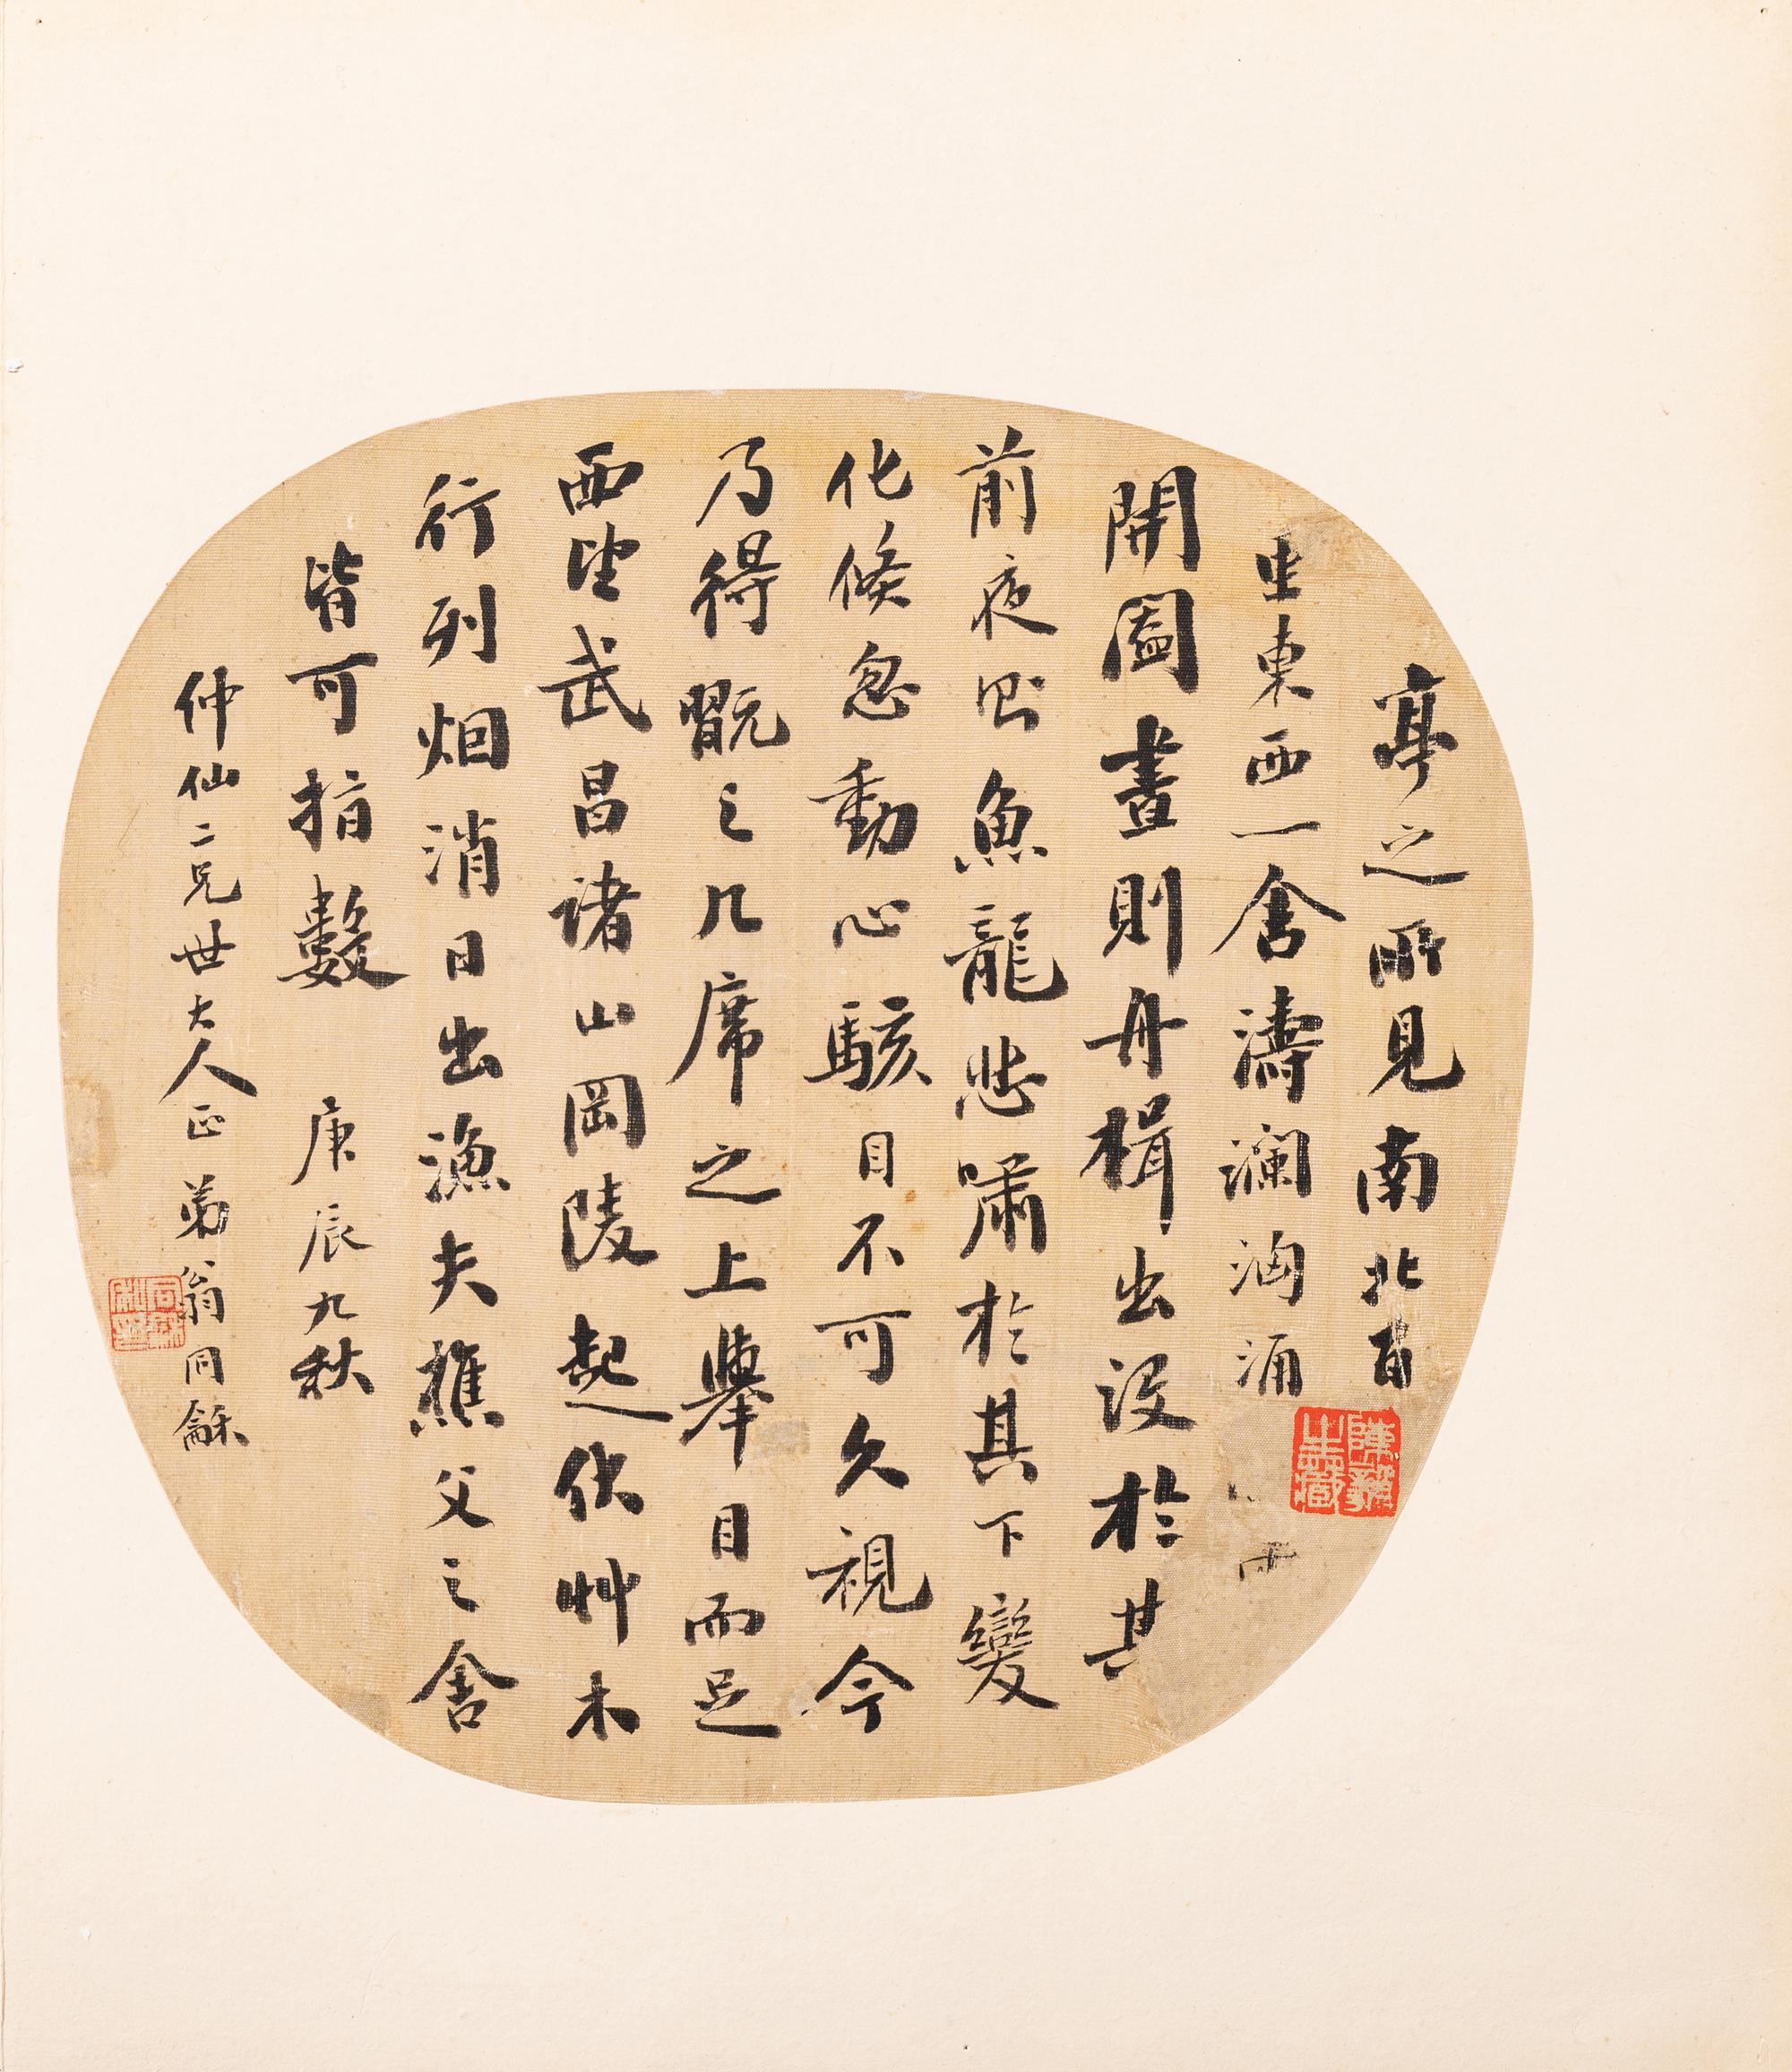 亭之所見南北百
里東西一舍濤瀾洶湧
開闔晝則舟楫出沒於其
前夜則魚龍悲嘯於其下變
化倏忽動心駭目不可久視今
乃得翫之几席之上舉目而足
西望武昌諸山岡陵起伏艸木
行列烟消日出漁夫樵父之舍
皆可指數 庚辰九秋
仲仙二兄世大人正 弟翁同龢